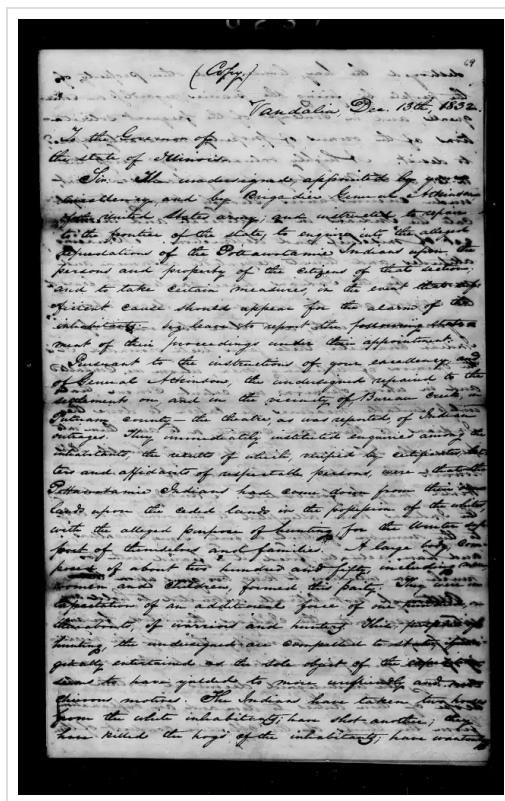 69
(Copy.)
Vandalia, Dec. 13th, 1832.
To the Governor of
the state of Illinois.
Sir: The undersigned, appointed by your
excellency, and by Brigadier General Atkinson
of the United States army, and instructed to repair
to the frontier of the state, to enquire into the alleged
depredations of the Pottawotamie Indians upon the
persons and property of the citizens of that section;
and to take certain measures, in the event that suf
ficient cause should appear for the alarm of the
inhabitants beg leave to report the following state
ment of their proceedings under their appointment.
Pursuant to the instructions of your excellency, and
of General Atkinson, the undersigned repaired to the
settlements on and in the vicinity of Bureau Creek, in
Putnam county the theatre, as was reported, of Indian
outrages. They immediately instituted enquiries among the
inhabitants, the results of which, verified by certificates, let
ters and affidavits of respectable persons, were, that the
Pottawotamie Indians had come down from their own
lands upon the ceded lands in the possession of the whites,
with the alleged purpose of hunting, for the Winter sup
port of themselves and families. A large body, com
posed of about two hundred and fifty, including
women and Children, formed this party. They
expectation of an additional force of one
of warriors and hunting. Their purpose of
hunting, the undersigned are compelled to
entertained as the sole object of the
seems to have yielded to more unfriendly and
motives. The Indians have taken two horses
from the white inhabitants; have shot another; they
have killed the hogs of the inhabitants; have wantonly